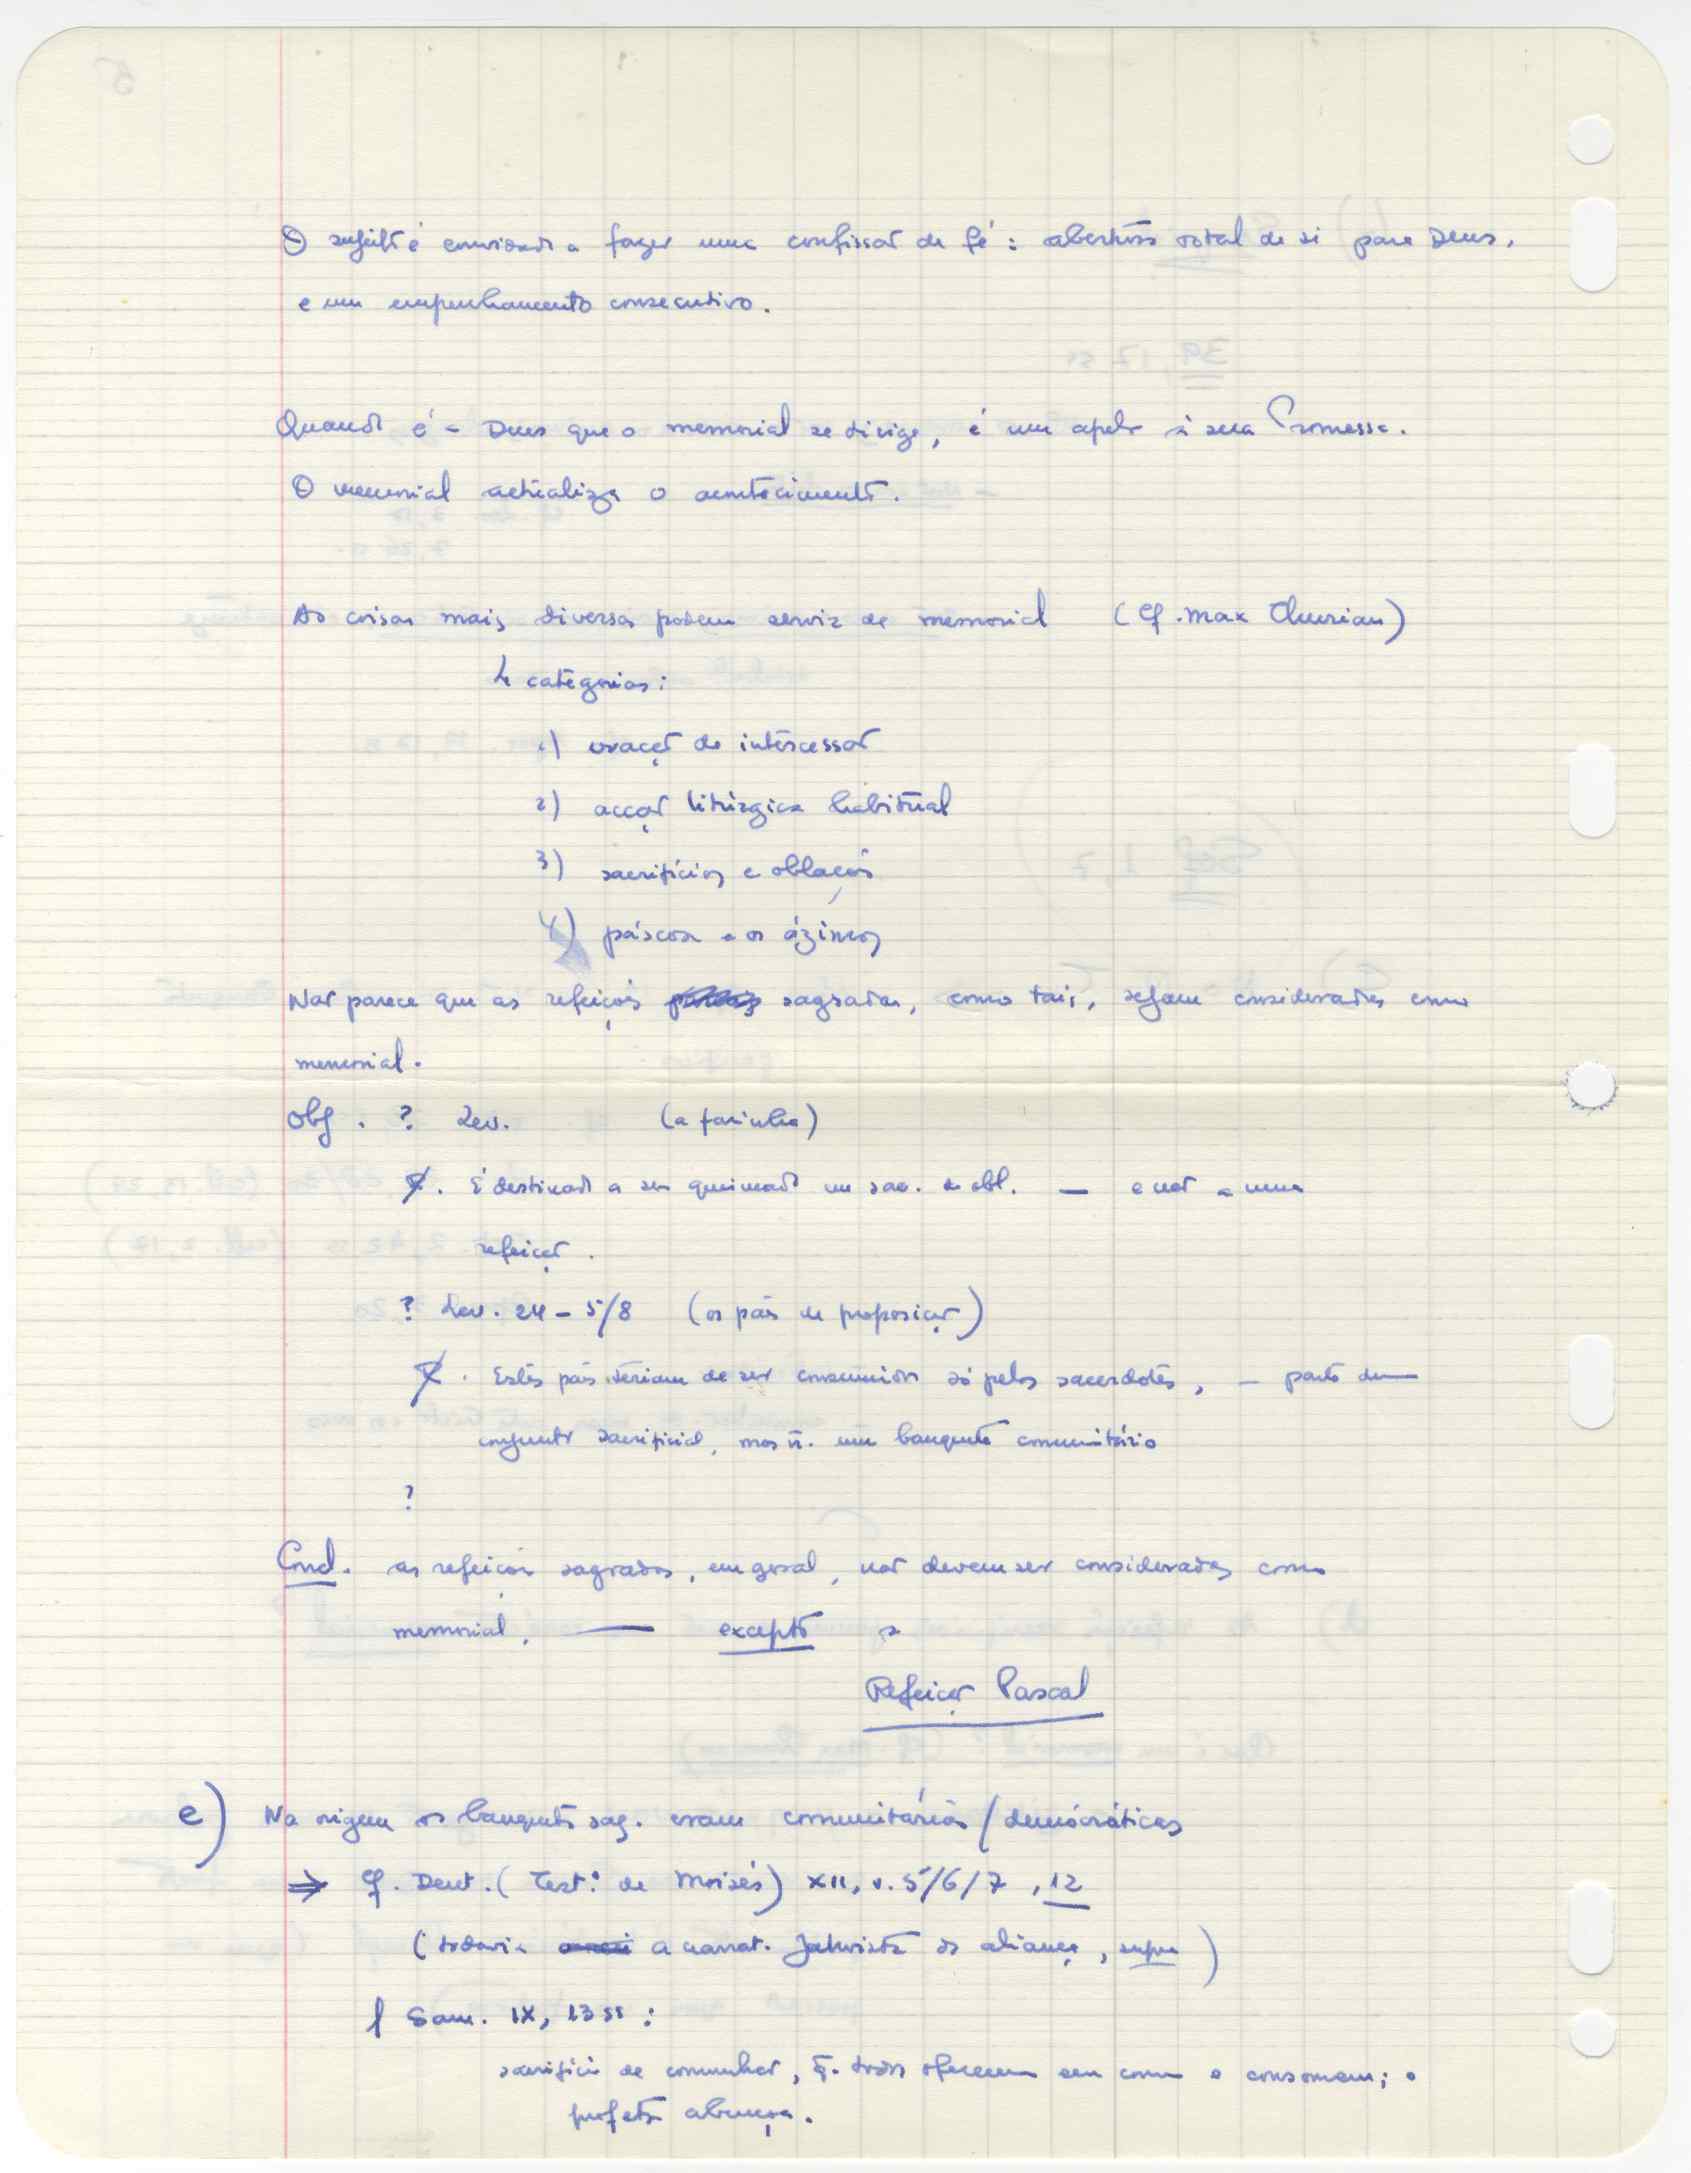 O sujeito é convidado a fazer uma confissão de fé: abertura total de si para Deus,
e um empenhamento consecutivo.
Quando é a Deus que o memorial se dirige, é um apelo à sua Promessa.
O memorial actualiza o acontecimento.
As coisas mais diversas podem servir de memorial (Cf. Max Thurian)
4 categorias:
1) oração de intercessão
2) acção litúrgica habitual
3) sacrifícios e oblações
4) páscoa e os ázimos
Não parece que as refeições sagradas, como tais, sejam consideradas como
memorial.
Obj. ? Lev. (a farinha)
R. É destinado a ser queimado em sac. de obl. — e não a uma
refeição.
? Lev. 24-5/8 (os pães de proposição)
R. Estes pães teriam de ser consumidos só pelos sacerdotes, — parte dum
conjunto sacrificial, mas ñ. um banquete comunitário
?
Concl. as refeições sagradas, em geral, não devem ser consideradas como
memorial, — excepto a
Refeição Pascal
e) Na origem os banquetes sag. eram comunitários/democráticos
⇒ Cf. Deut. (Test.º de Moisés) XII, v. 5/6/7, 12
(todavia a narrat. Jahvista da aliança, supra)
1 Sam. IX, 13 ss:
sacrifício de comunhão, q. todos oferecem em comum e consomem; o
profeta abençoa.